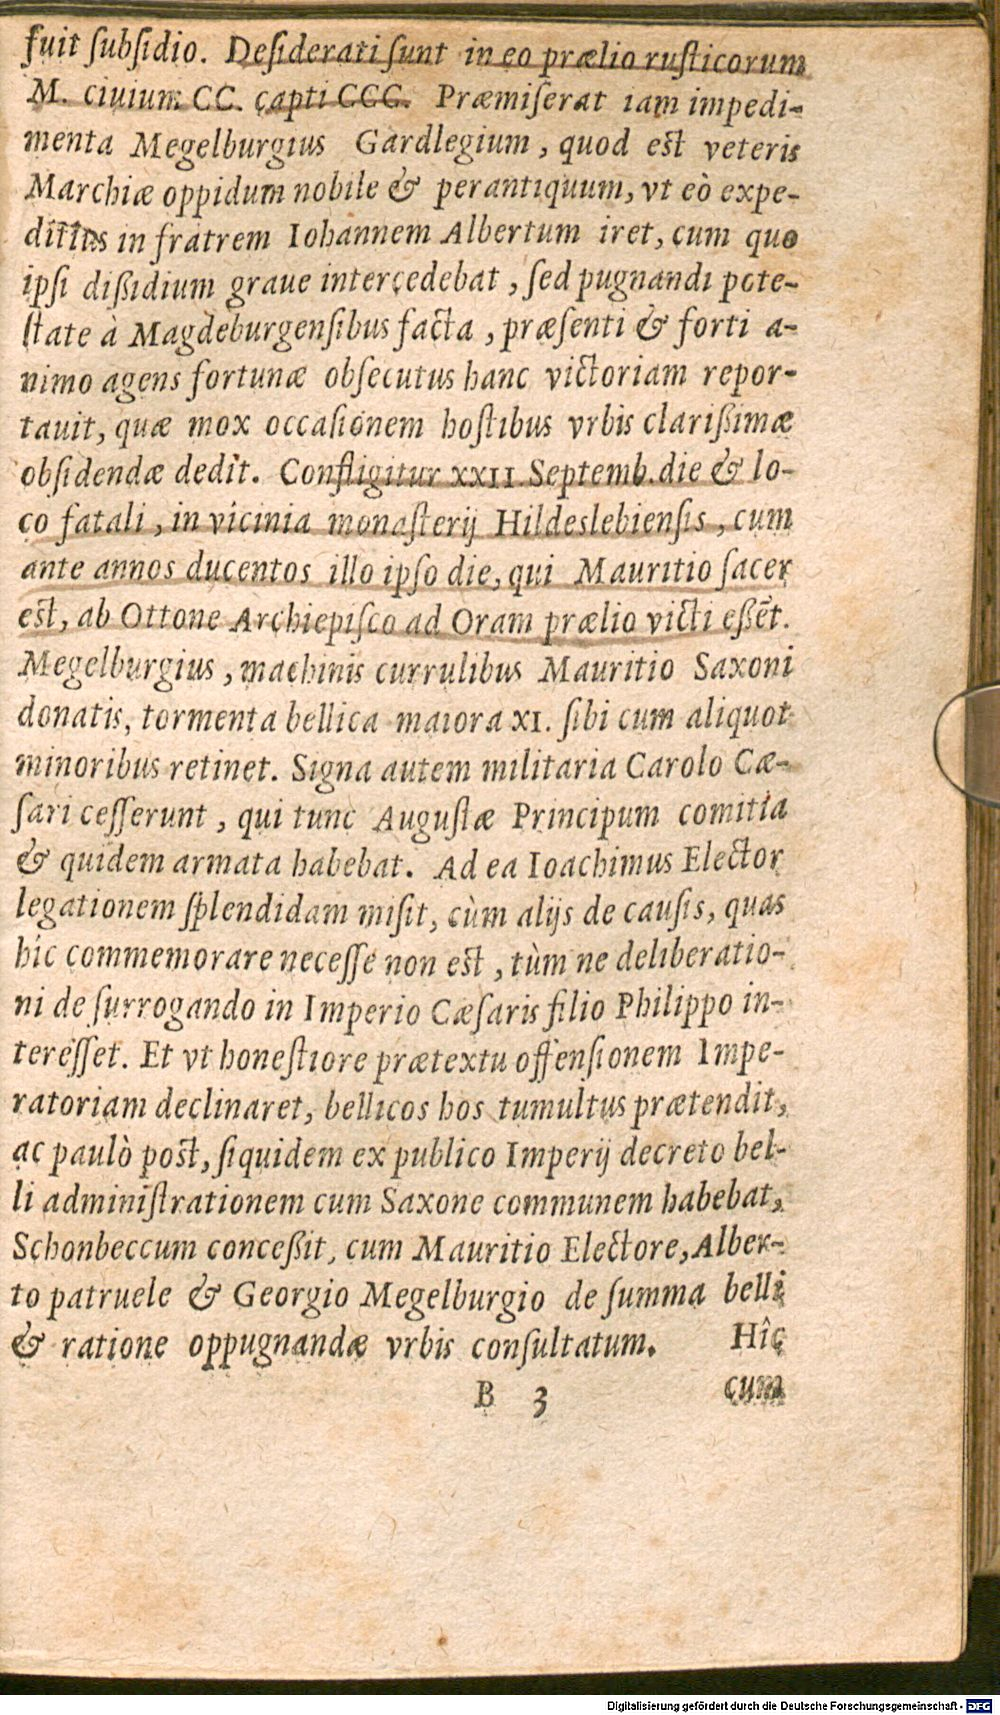 fuit ſubſidio. Deſiderati ſunt in eo prælio ruſticorum
M. ciuium CC. capti CCC. Præmiſerat iam impedi-
menta Megelburgius Gardlegium, quod eſt veteris
Marchiæ oppidum nobile & perantiquum, vt eò expe-
ditius in fratrem Iohannem Albertum iret, cum quo
ipſi dißidium graue intercedebat, ſed pugnandi pote-
ſtate à Magdeburgenſibus facta, præſenti & forti a-
nimo agens fortunæ obſecutus hanc victoriam repor-
tauit, quæ mox occaſionem hoſtibus vrbis clarißimæ
obſidendæ dedit. Confligitur XXII Septemb. die & lo-
co fatali, in vicinia monaſterij Hildeslebienſis, cum
ante annos ducentos illo ipſo die, qui Mauritio ſacer
eſt, ab Ottone Archiepiſco ad Oram prælio victi eßēt.
Megelburgius, machinis currulibus Mauritio Saxoni
donatis, tormenta bellica maiora XI. ſibi cum aliquot
minoribus retinet. Signa autem militaria Carolo Cæ-
ſari ceſſerunt, qui tunc Auguſtæ Principum comitia
& quidem armata habebat. Ad ea Ioachimus Elector
legationem ſplendidam miſit, cùm alijs de cauſis, quas
hîc commemorare neceſſe non eſt, tùm ne deliberatio-
ni de ſurrogando in Imperio Cæſaris filio Philippo in-
tereſſet. Et vt honeſtiore prætextu offenſionem Impe-
ratoriam declinaret, bellicos hos tumultus prætendit,
ac paulò poſt, ſiquidem ex publico Imperij decreto bel-
li adminiſtrationem cum Saxone communem habebat,
Schonbeccum conceßit, cum Mauritio Electore, Alber-
to patruele & Georgio Megelburgio de ſumma belli
& ratione oppugnandæ vrbis conſultatum. Hîc
B 3 cum
Digitalisierung gefördert durch die Deutsche Forschungsgemeinschaft - DFG